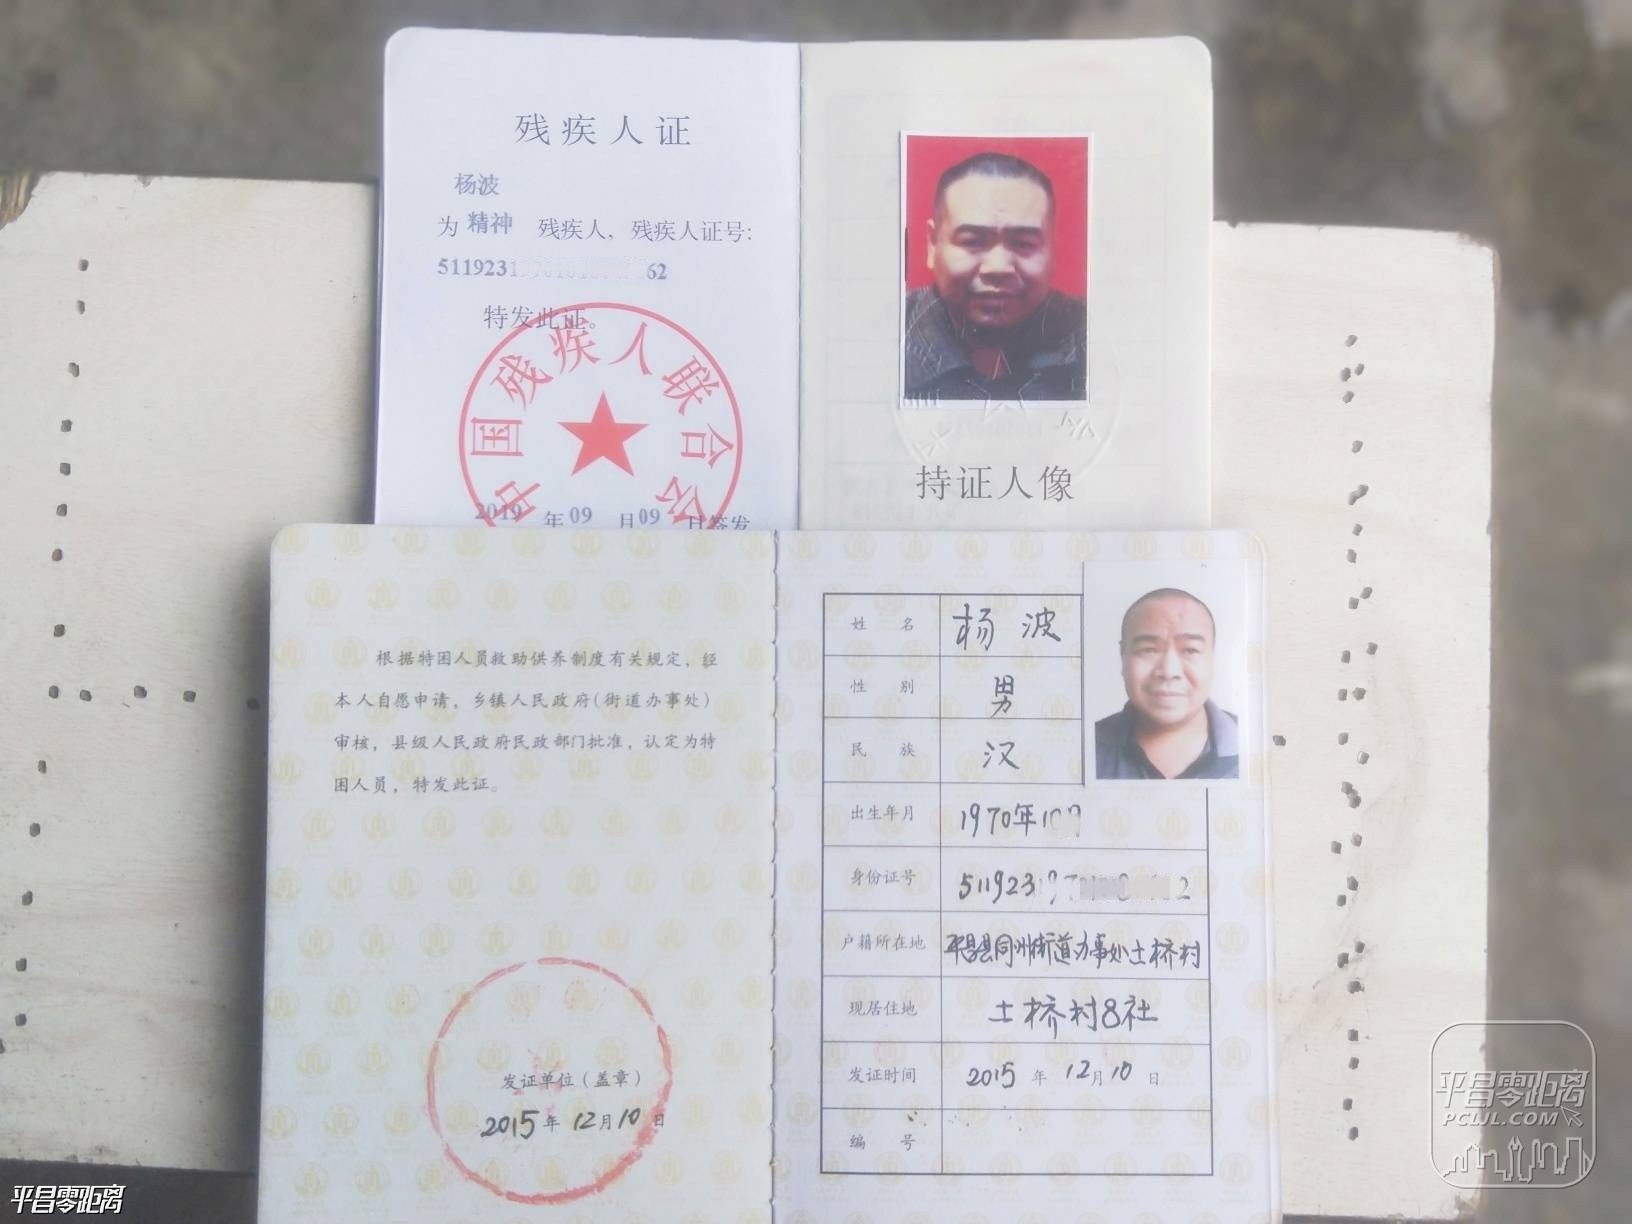 残疾人证
杨波
为 精神 残疾人，残疾人证号：
511923 62
特发此证。
中国残疾人联合会
2019 年 09 月 09 日签发
持证人像
根据特困人员救助供养制度有关规定，经
本人自愿申请，乡镇人民政府（街道办事处）
审核，县级人民政府民政部门批准，认定为特
困人员，特发此证。
发证单位（盖章）
2015 年 12 月 10 日
姓 名 杨 波
性 别 男
民 族 汉
出生年月 1970年10
身份证号 511923197 2
户籍所在地 平昌县同州街道办事处土桥村
现居住地 土桥村8社
发证时间 2015 年 12 月 10 日
编 号
平昌零距离
PCLJL.COM
平昌零距离